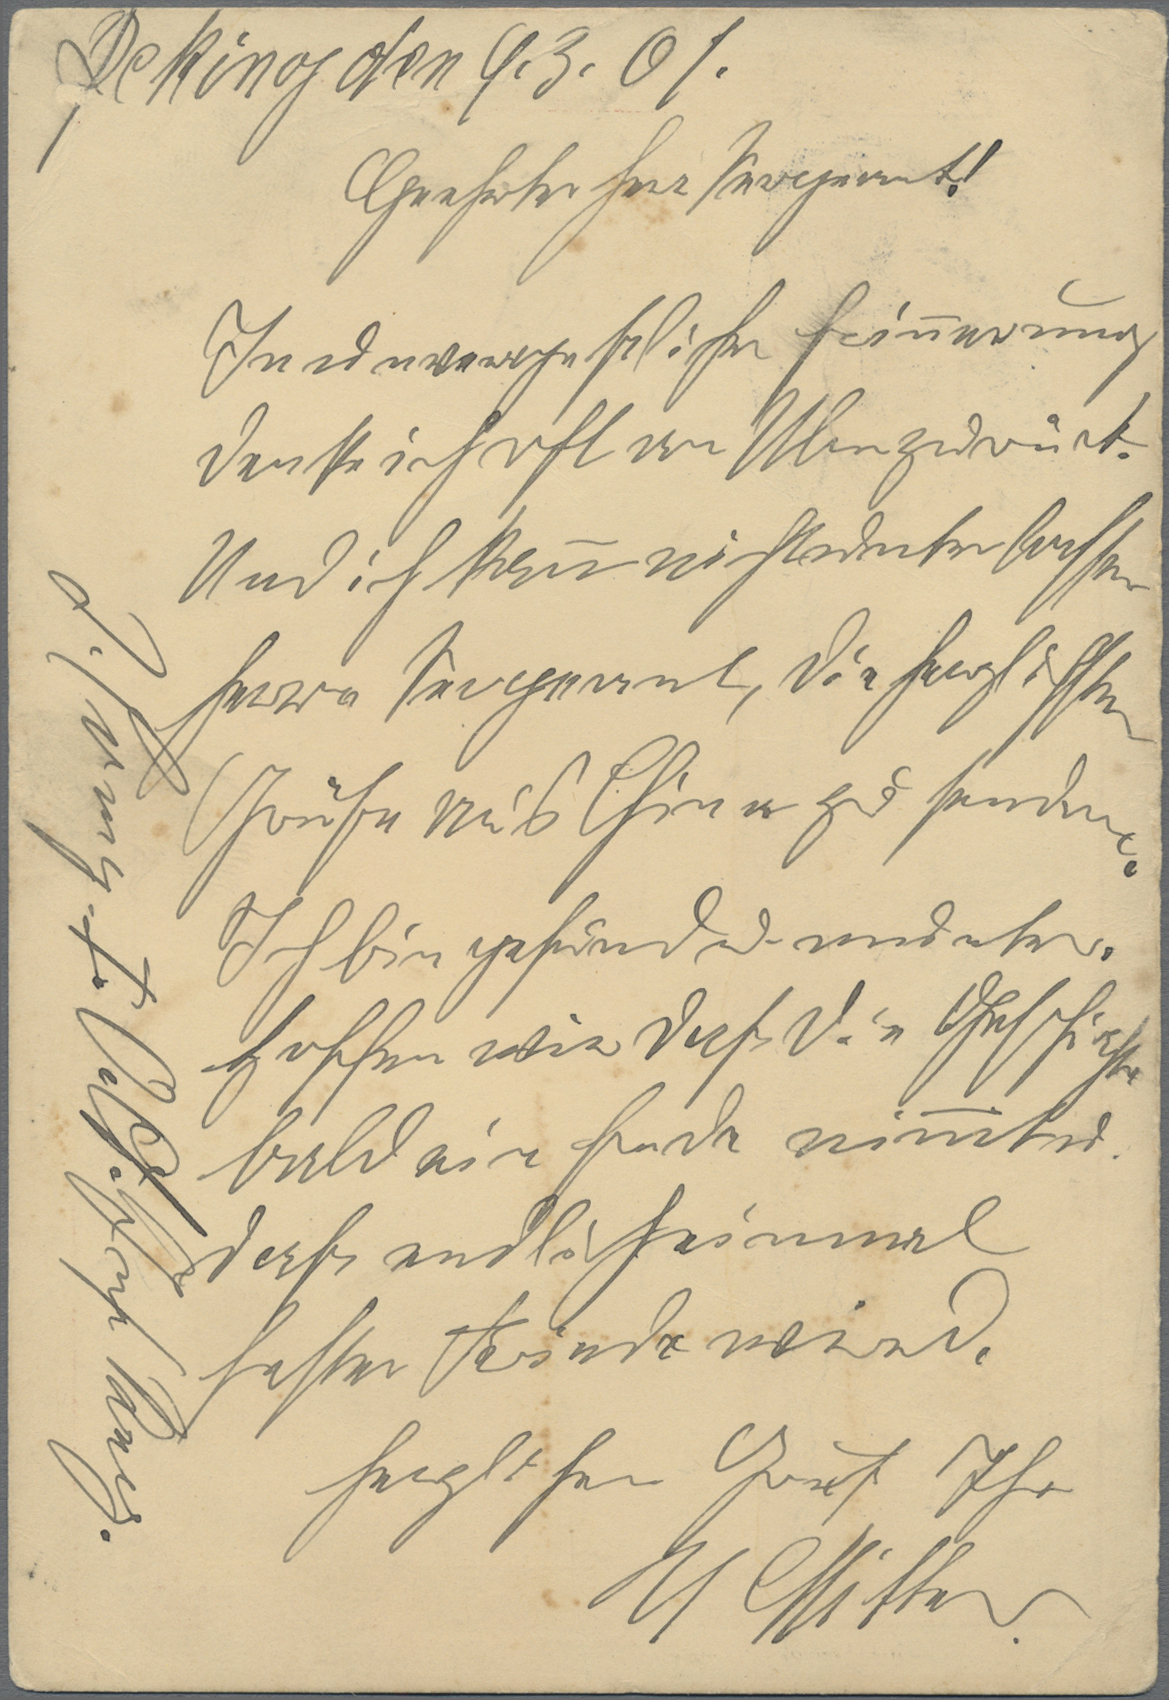 Peking den 9.3.01.
Geehrter Herr Sergeant!
In unvergeßlicher Erinnerung
denke ich oft an Ulm zurück.
Und ich kann nicht unterlassen
Herrn Sergeant, die herzlichsten
Grüße aus China zu senden.
Ich bin gesund u. munter.
hoffen wir daß die Geschichte
bald ein Ende nimmt u.
daß endlich einmal
fester Friede wird.
herzlichen Gruß Ihr